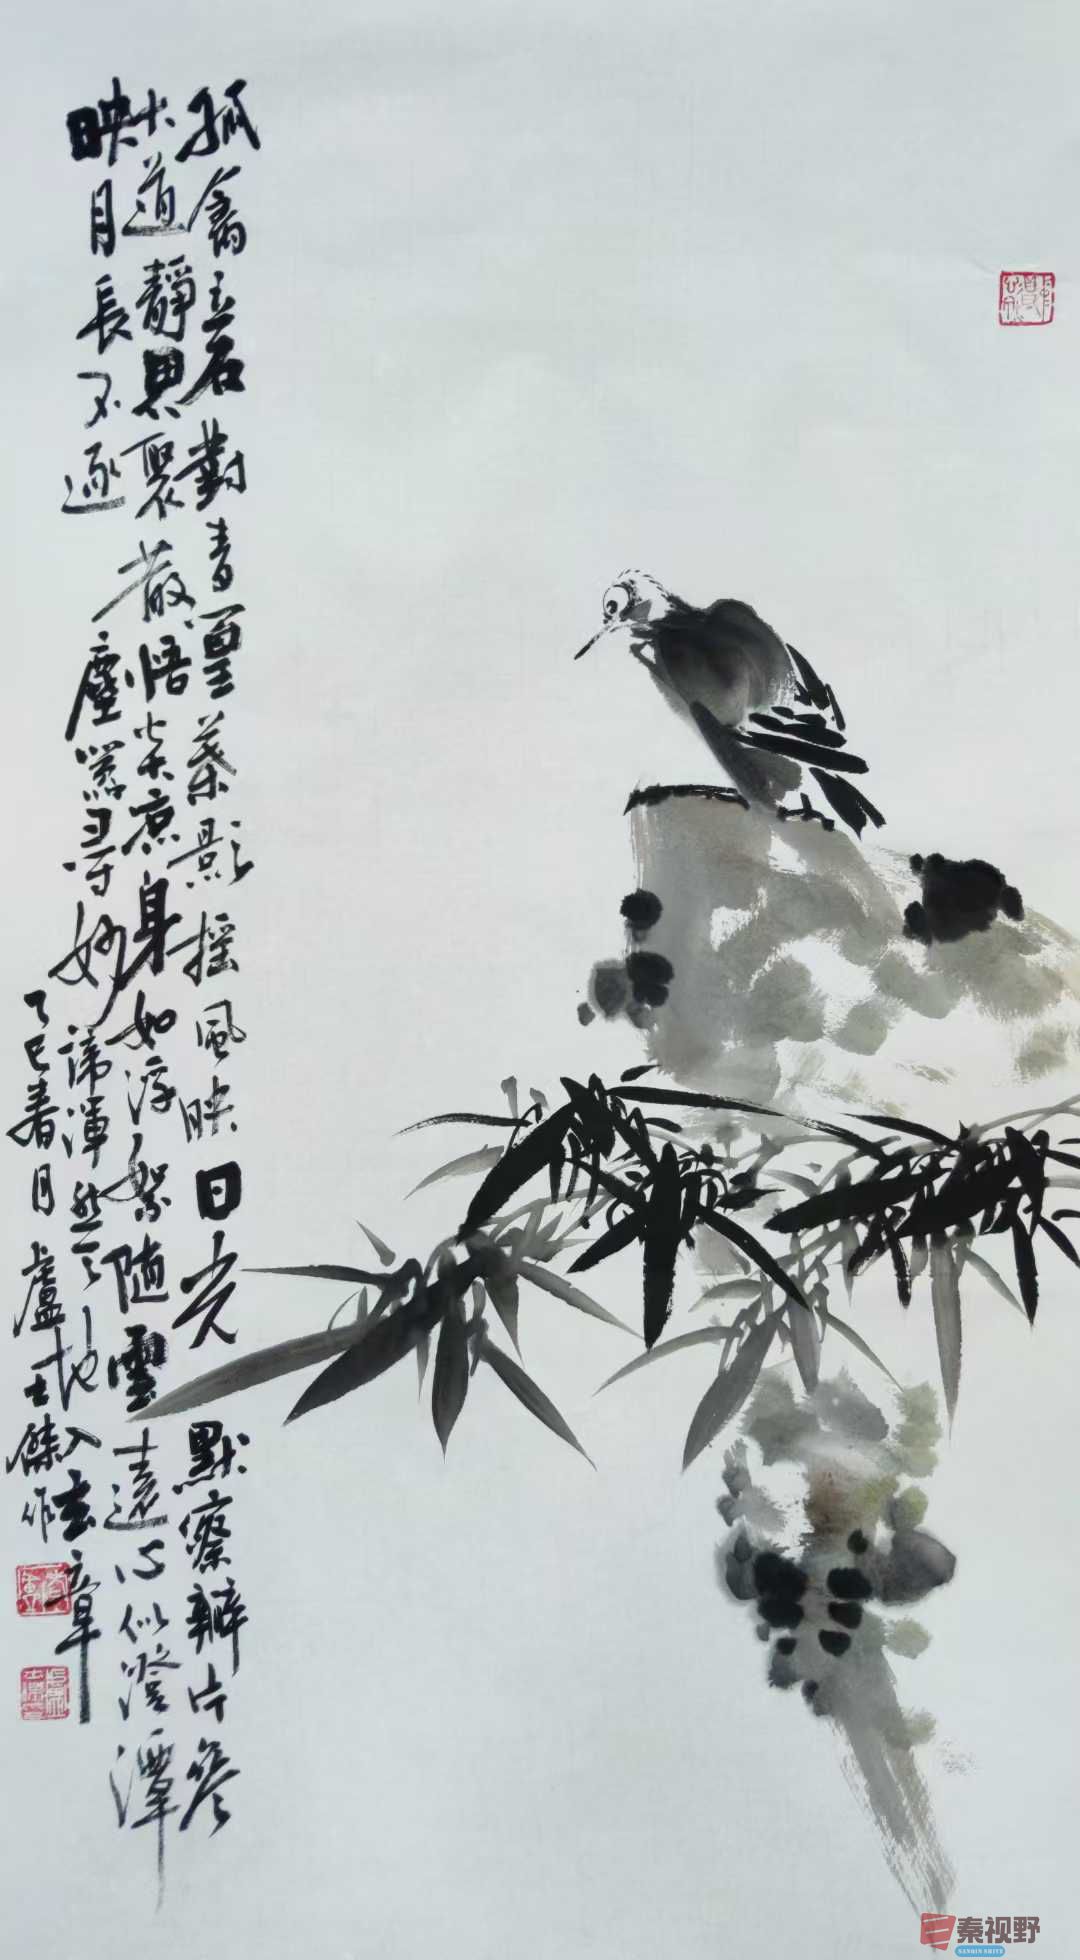 孤禽立石對青篁葉影搖風映日光默察片參
大道靜思聚散悟身如浮絮隨雲遠心似澄潭
映月長不逐塵囂尋妙諦渾然天地入玄章
乙巳春月盧士傑作
秦视野
SANQIN SHIYE